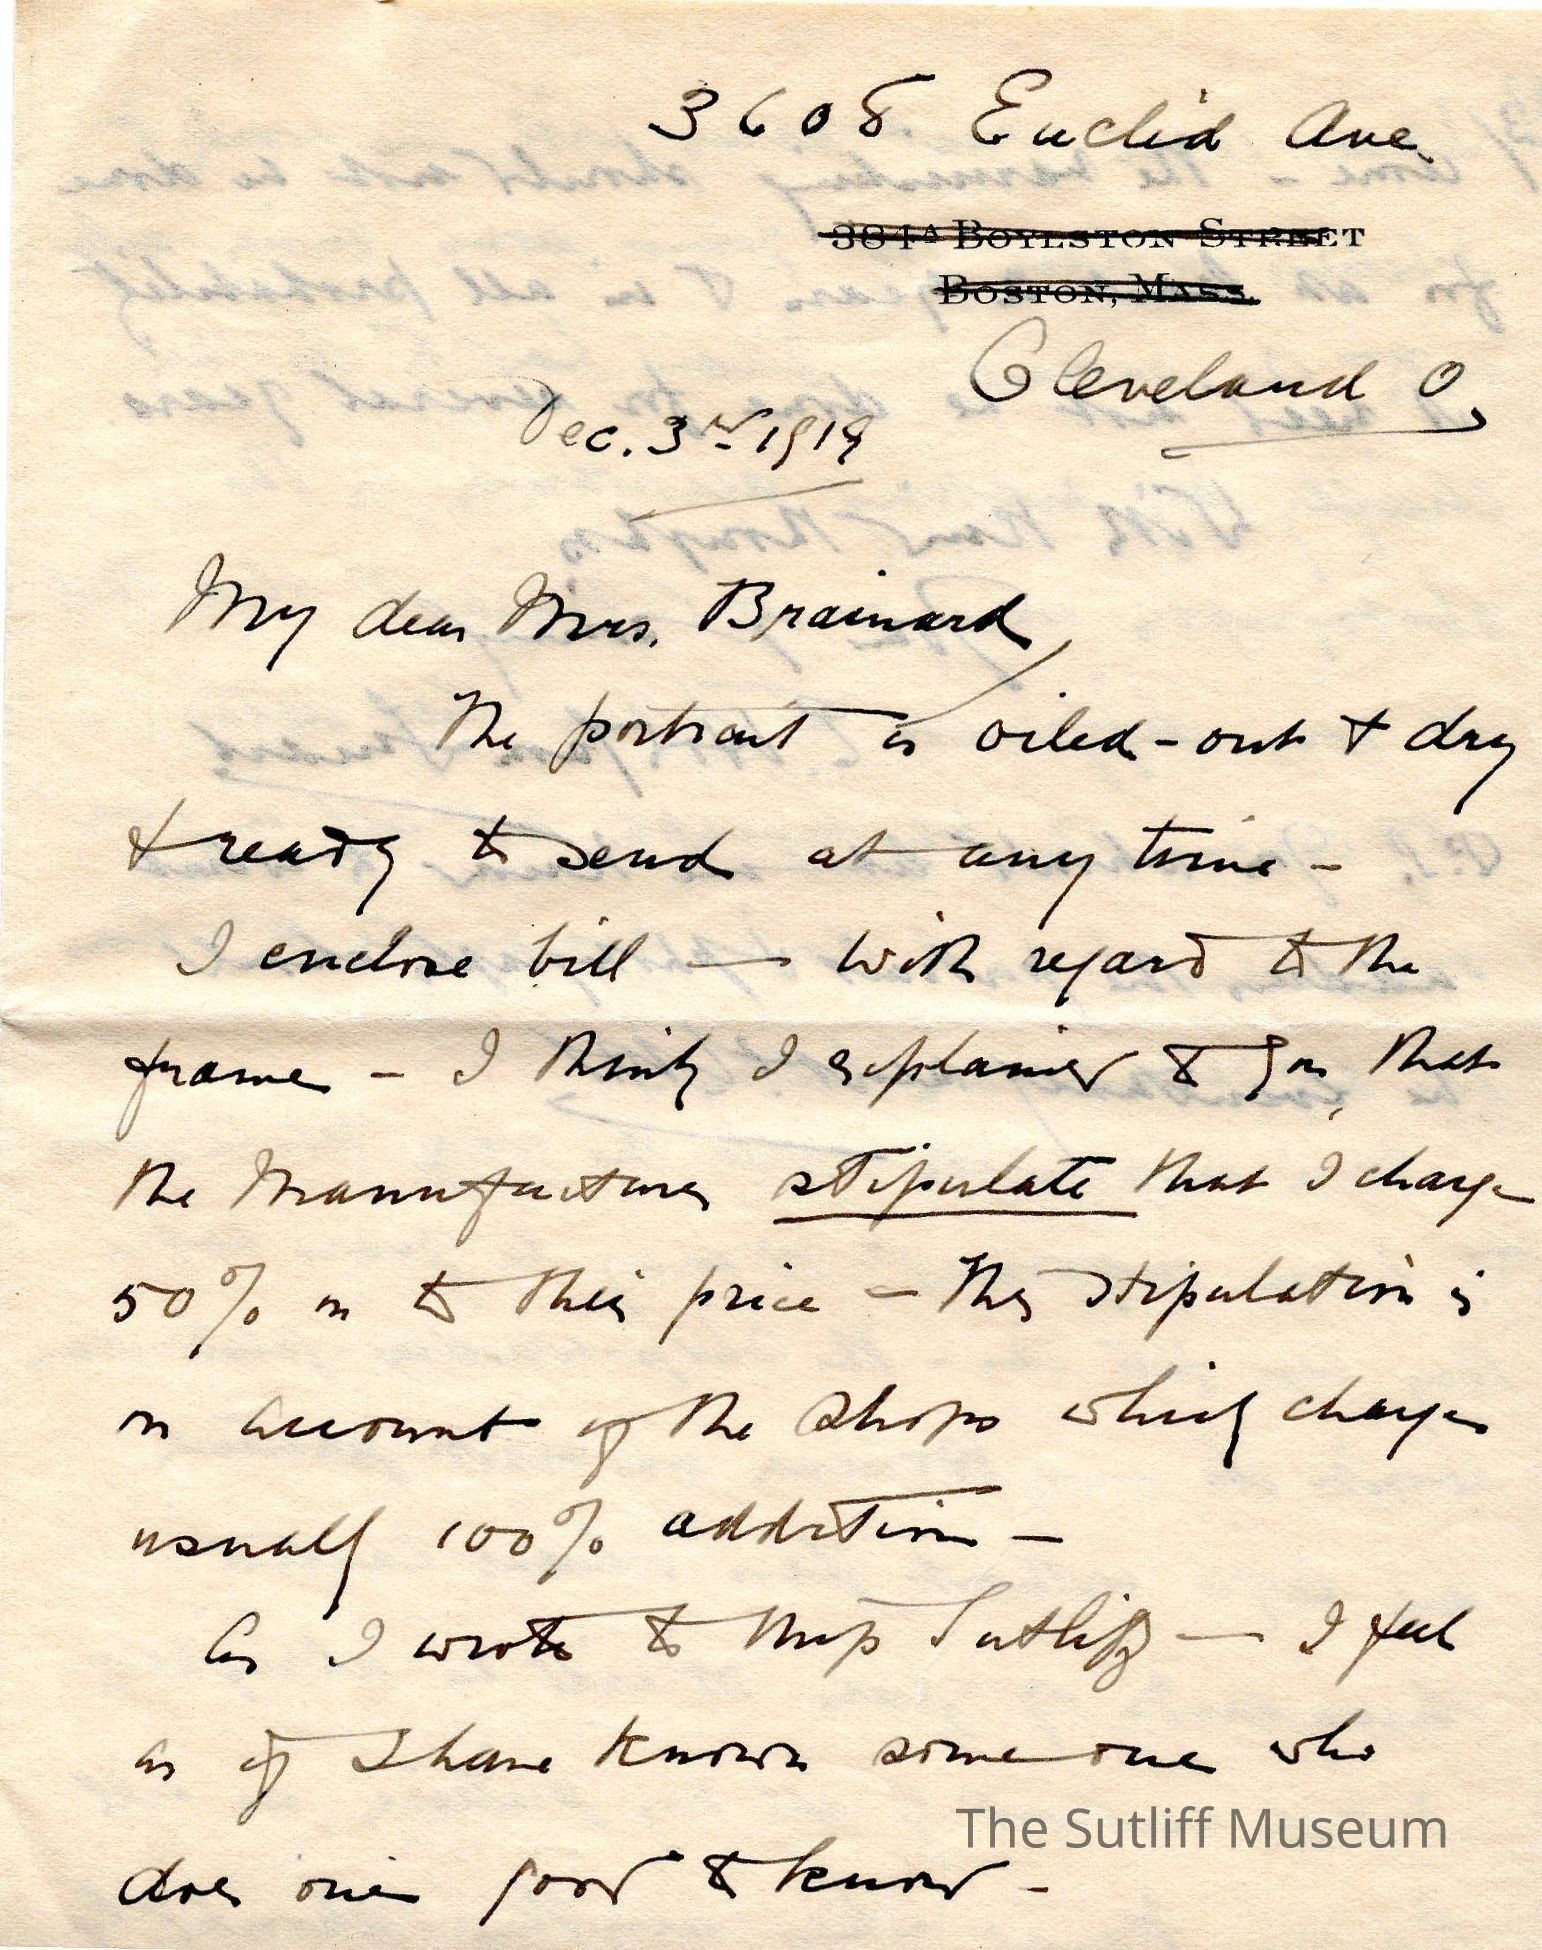 3608 Euclid Ave.
384A BOYLSTON STREET
BOSTON, MASS.
Cleveland O,
Dec. 3rd 1919
My dear Mrs. Brainard,
The portrait is oiled-out & dry
& ready to send at any time -
I enclose bill — with regard to the
frame - I think I explained to you that
the Manufacturers stipulate that I charge
50% on to their price - This stipulation is
on account of the shops which charge
usually 100% addition -
As I wrote to Miss Sutliff — I feel
as if I have known some one who
does one good to know -
The Sutliff Museum